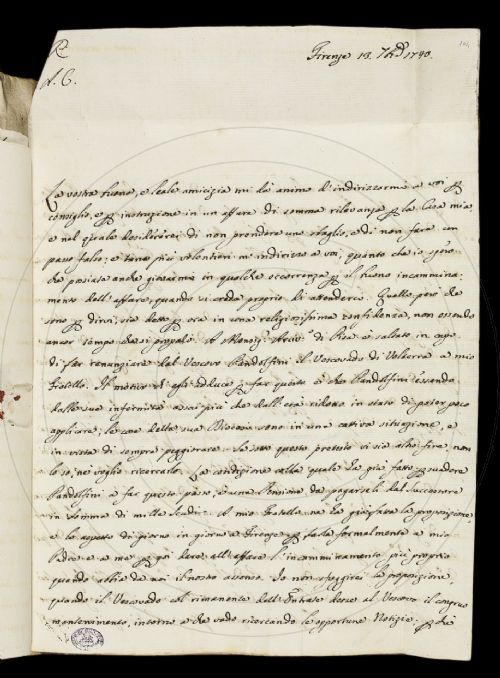 R
A. C.
Firenze 13. 7bre 1740.
La vostra buona, e leale amicizia mi dà animo d'indirizzarmi a voi p
consiglio, e p instruzione in un affare di somma rilevanza p la Casa mia
e nel quale desidererei di non prendere uno sbaglio, e di non fare un
passo falso; e tanto più volentieri m'indirizzo a voi, quanto che io spero
che possiate anche giovarmi in qualche occorrenza p il buono incammina-
mento dell'affare, quando si creda proprio di attenderci. Quello però che
sono p dirvi, sia detto p ora in una religiosissima confidenza, non essendo
ancor tempo che si propali. A Monsig. Arciv. di Pisa è saltato in capo
di far renunziare dal Vescovo Pandolfini il Vescovado di Volterra a mio
Fratello. Il motivo ch'egli adduce p far questo è che Pandolfini essendo
dalle sue infermità assai più che dall'età ridotto in stato di poter poco
applicare, le cose della sua Diocesi sono in una cattiva situazione, e
in vista di sempre peggiorare. Se sotto questo pretesto vi sia altro fine, non
lo so, nè voglio ricercarlo. La condizione colla quale ha già fatto p
Pandolfini a far questo passo, è una Pensione da pagarseli dal Successore
in somma di mille Scudi. A mio Fratello ne ha già fatta la proposizione,
e lo aspetto di giorno in giorno a Firenze p farla formalmente a mio
Padre e a me, p poi dare all'affare l'incamminamento più proprio
quando abbia da noi il nostro assenso. Io non sfuggirei la proposizione,
quando il Vescovado col rimanente dell'Entrate desse al Vescovo il congruo
mantenimento, intorno a che vado ricercando le opportune Notizie. p che